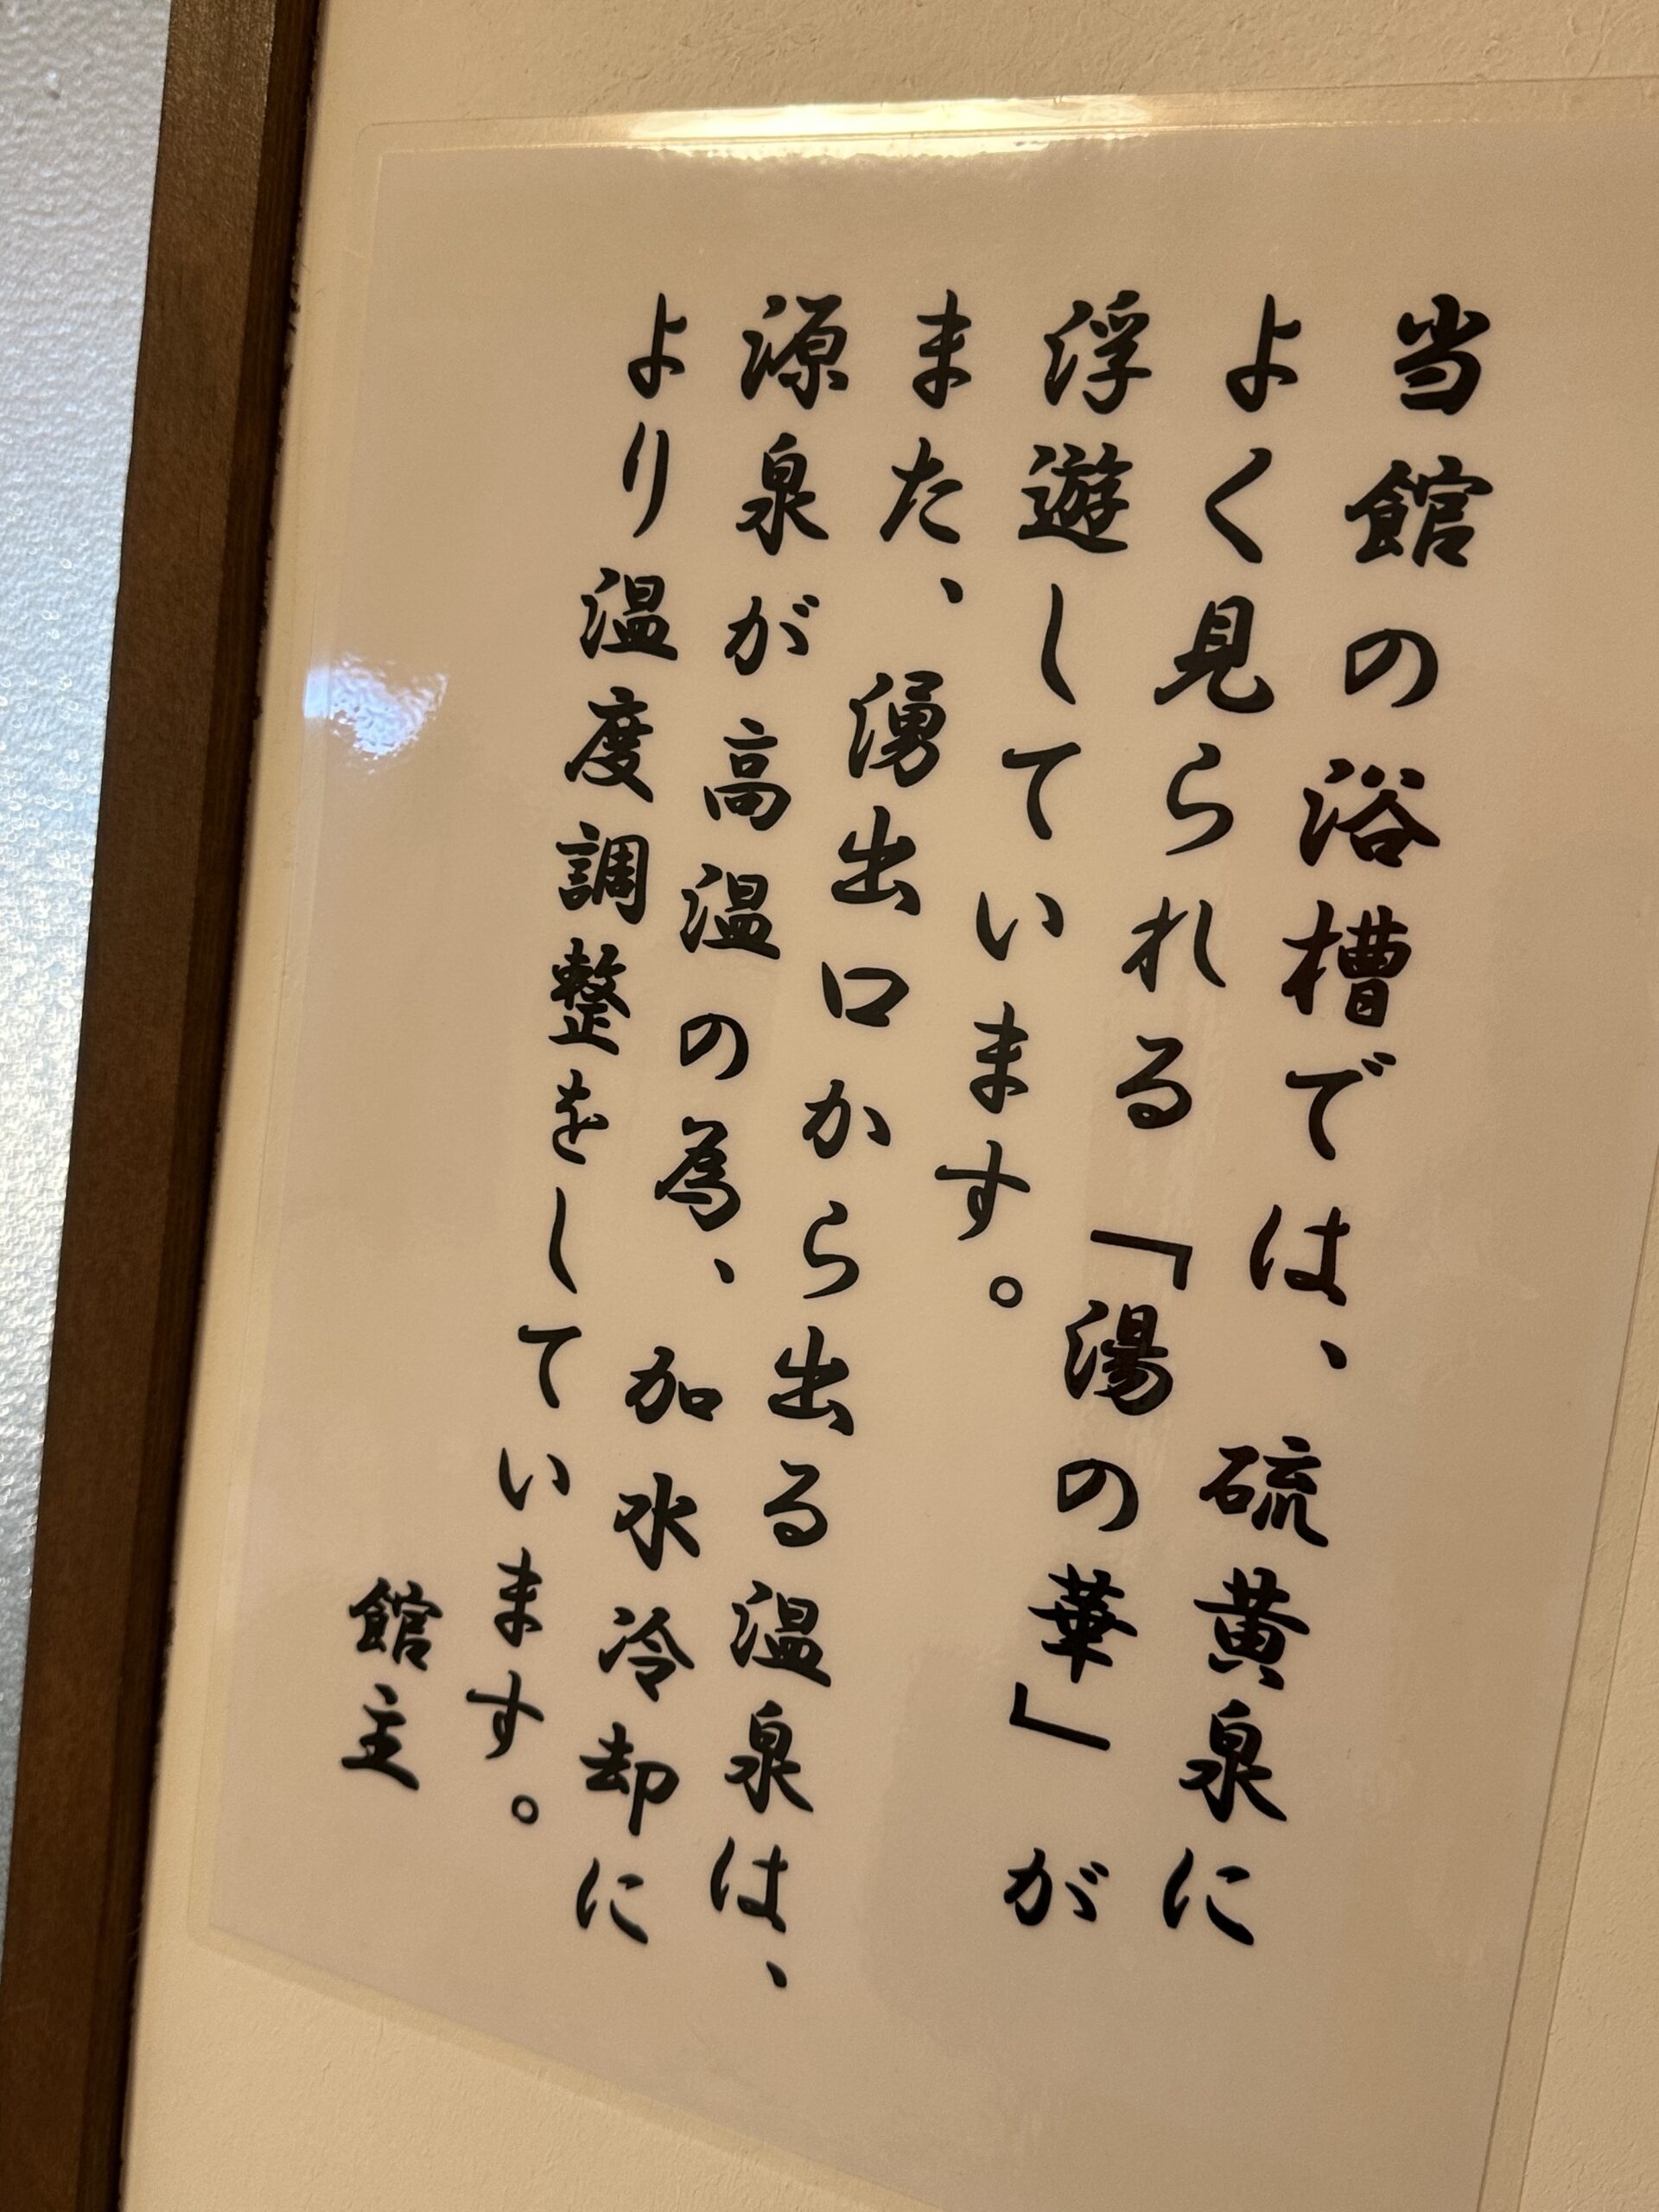 当館の浴槽では、硫黄泉に
よく見られる「湯の華」が
浮遊しています。
また、湧出口から出る温泉は、
源泉が高温の為、加水冷却に
より温度調整をしています。
館主